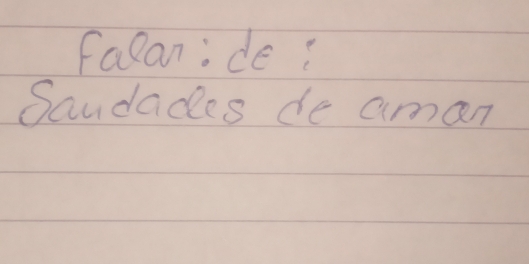 Falar: de:
Saudades de amar